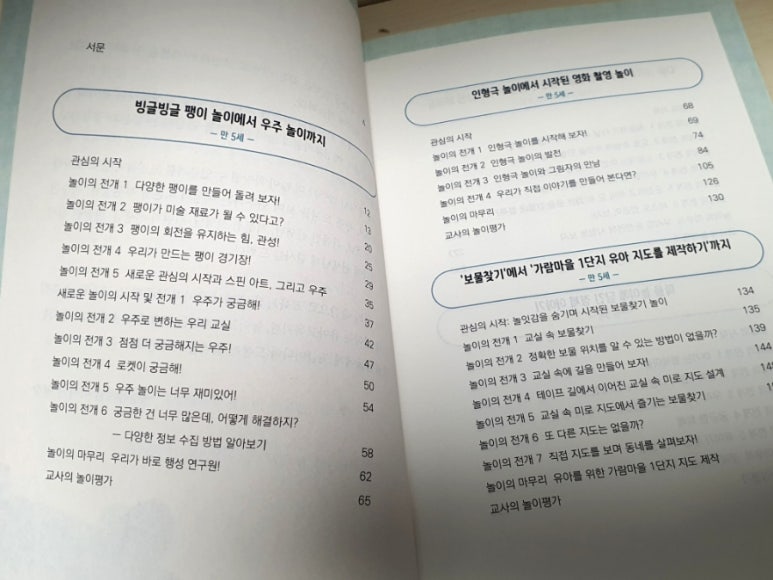 서문
빙글빙글 팽이 놀이에서 우주 놀이까지
– 만 5세 –
관심의 시작
놀이의 전개 1 다양한 팽이를 만들어 돌려 보자! 12
놀이의 전개 2 팽이가 미술 재료가 될 수 있다고? 13
놀이의 전개 3 팽이의 회전을 유지하는 힘, 관성! 20
놀이의 전개 4 우리가 만드는 팽이 경기장! 25
놀이의 전개 5 새로운 관심의 시작과 스핀 아트, 그리고 우주 29
새로운 놀이의 시작 및 전개 1 우주가 궁금해! 35
놀이의 전개 2 우주로 변하는 우리 교실 37
놀이의 전개 3 점점 더 궁금해지는 우주! 42
놀이의 전개 4 로켓이 궁금해! 47
놀이의 전개 5 우주 놀이는 너무 재미있어! 50
놀이의 전개 6 궁금한 건 너무 많은데, 어떻게 해결하지? 54
– 다양한 정보 수집 방법 알아보기
놀이의 마무리 우리가 바로 행성 연구원! 58
교사의 놀이평가 62
65
인형극 놀이에서 시작된 영화 촬영 놀이
– 만 5세 –
관심의 시작 68
놀이의 전개 1 인형극 놀이를 시작해 보자! 69
놀이의 전개 2 인형극 놀이의 발전 74
놀이의 전개 3 인형극 놀이와 그림자의 만남 84
놀이의 전개 4 우리가 직접 이야기를 만들어 본다면? 105
놀이의 마무리 126
교사의 놀이평가 130
'보물찾기'에서 '가람마을 1단지 유아 지도를 제작하기'까지
– 만 5세 –
관심의 시작: 놀잇감을 숨기며 시작된 보물찾기 놀이 134
놀이의 전개 1 교실 속 보물찾기 135
놀이의 전개 2 정확한 보물 위치를 알 수 있는 방법이 없을까? 139
놀이의 전개 3 교실 속에 길을 만들어 보자! 144
놀이의 전개 4 테이프 길에서 이어진 교실 속 미로 지도 설계 149
놀이의 전개 5 교실 속 미로 지도에서 즐기는 보물찾기
놀이의 전개 6 또 다른 지도는 없을까?
놀이의 전개 7 직접 지도를 보며 동네를 살펴보자!
놀이의 마무리 유아를 위한 가람마을 1단지 지도 제작
교사의 놀이평가